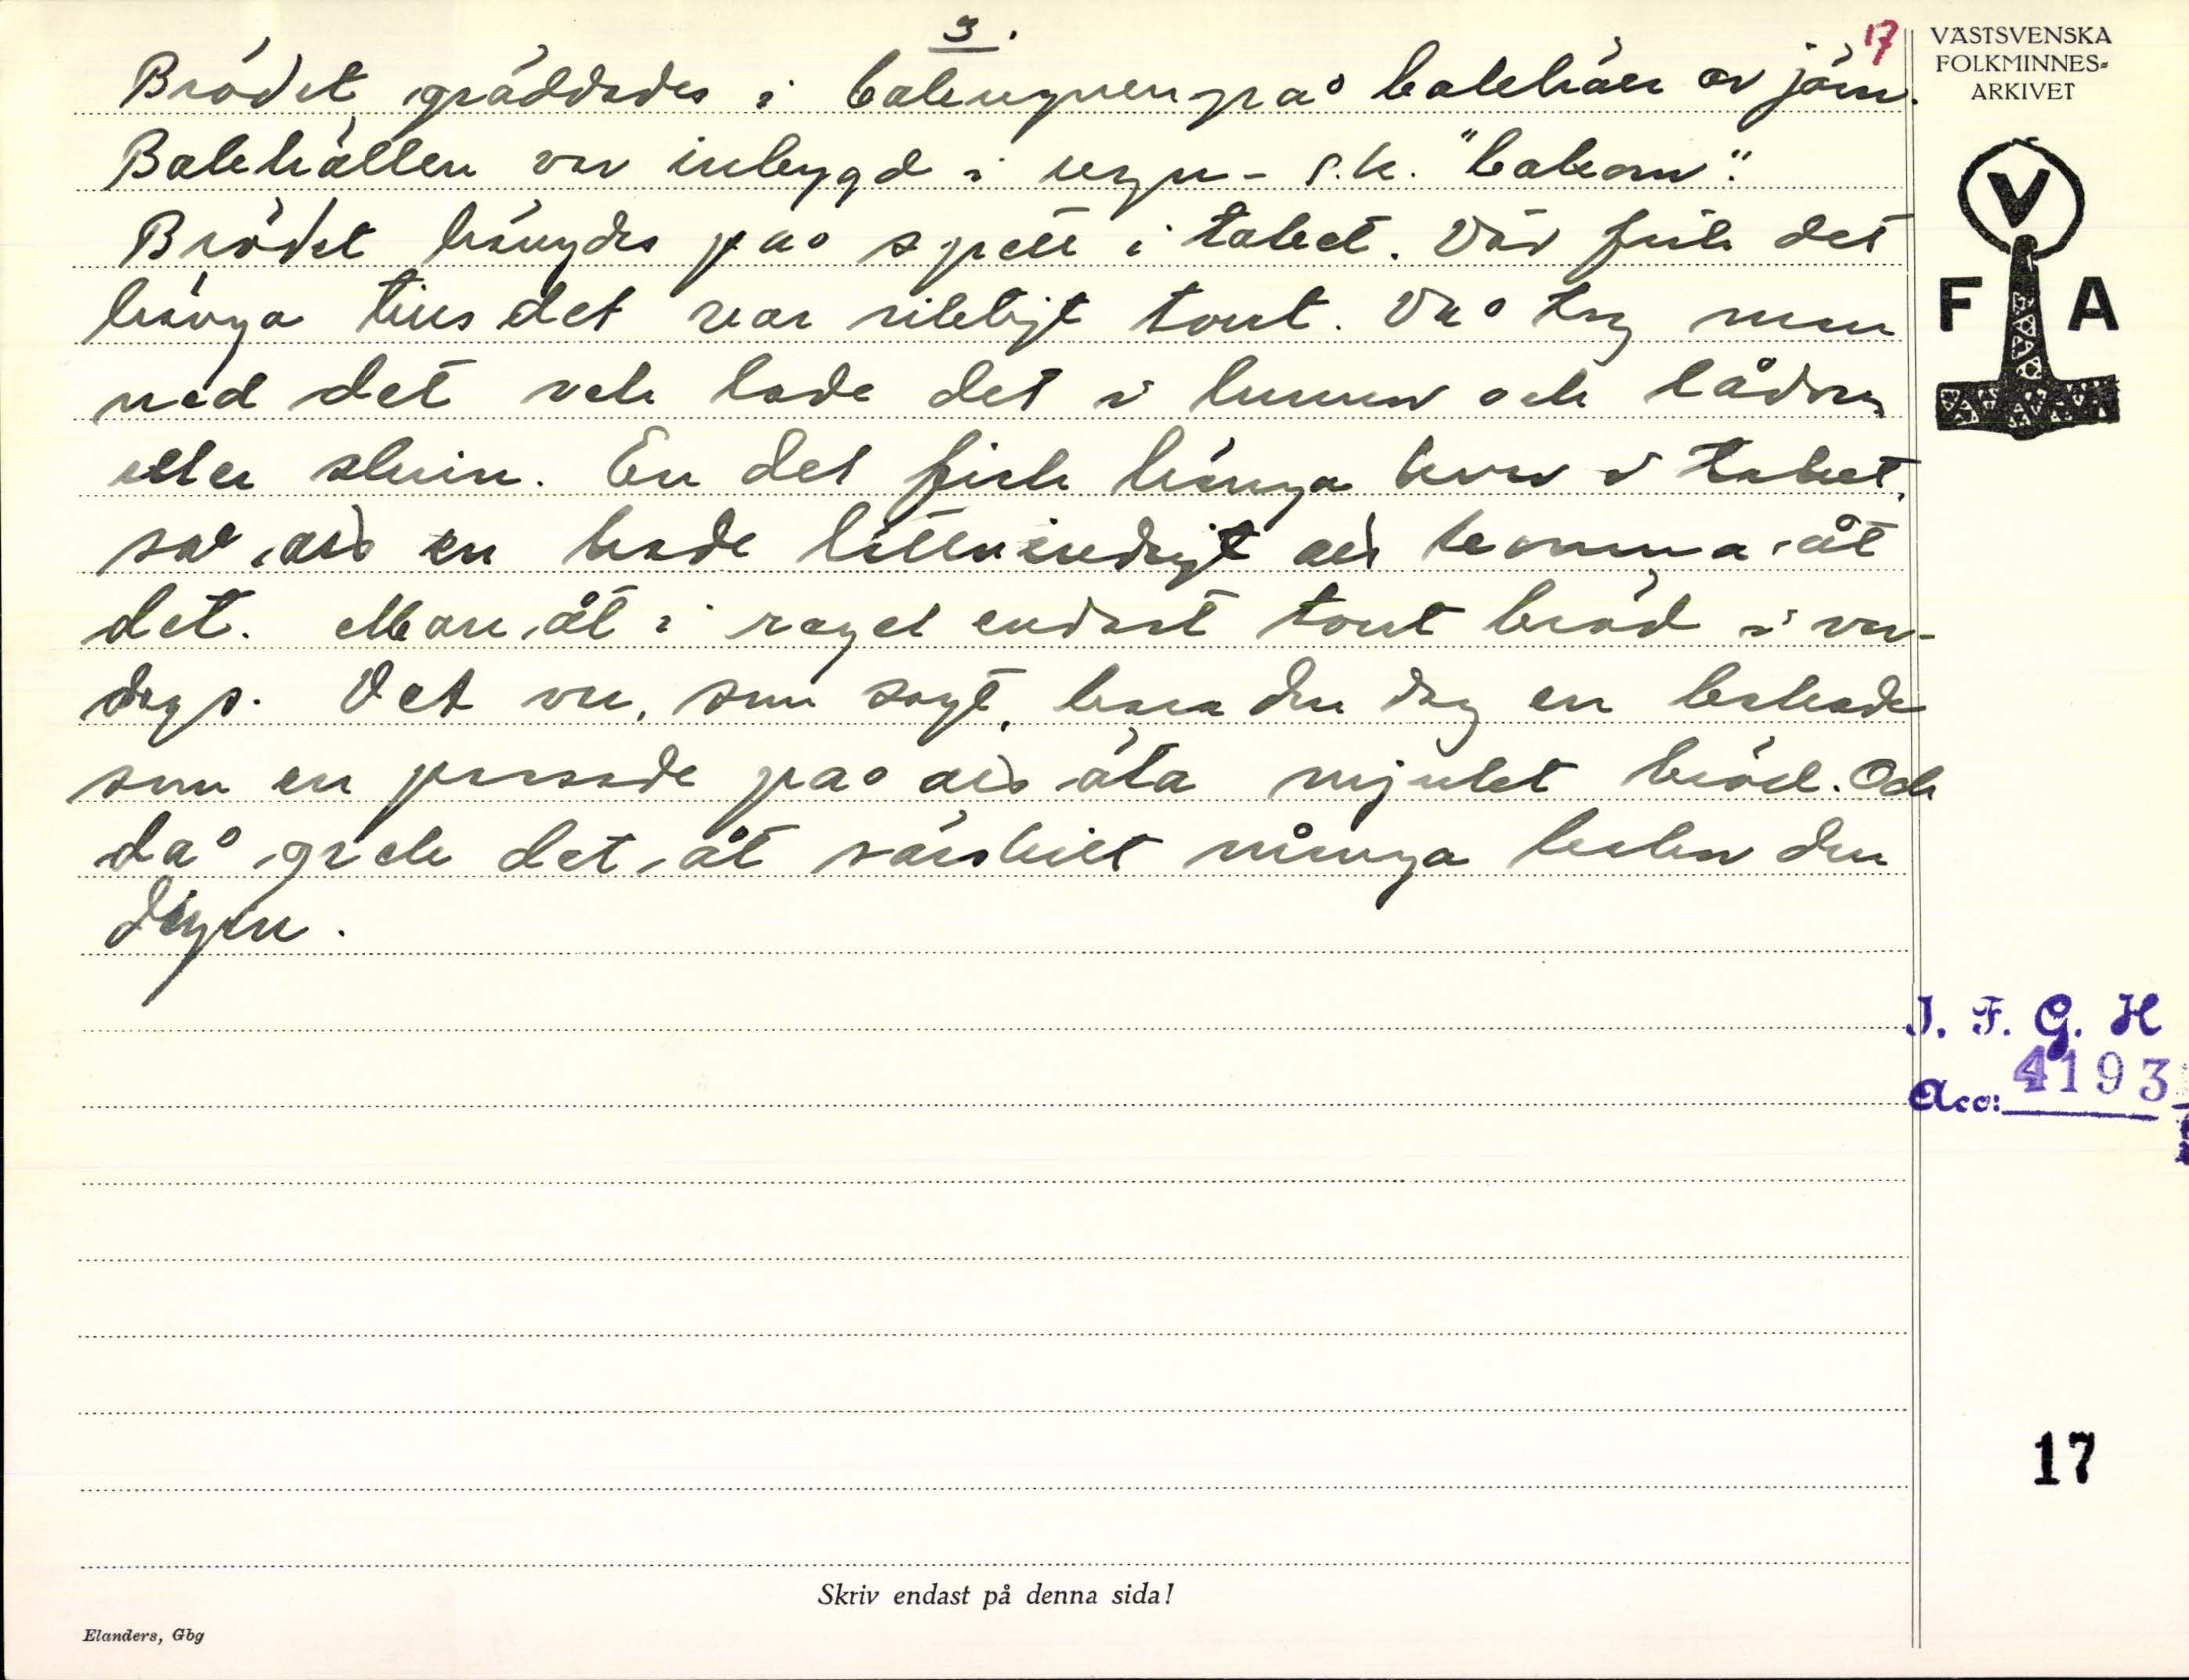 3.
17
Brödet gräddades i bakugnen på bakhäll av järn.
Bakhällen var inbygd i ugn - s.k. "bakom".
Brödet hängdes på spett i taket. Där fick det
hänga tills det var riktigt tort. Då tog man
ned det och lade det i tunnor och lådor
eller skrin. En del fick hänga kvar i taket,
så att en hade lättvindigt att komma åt
det. Man åt i regel endast tort bröd i var-
dags. Det var, som sagt, bara den dag en bakade
som en passade på att äta mjukt bröd. Och
då gick det åt särskilt många kakor den
dagen.
VÄSTSVENSKA
FOLKMINNES-
ARKIVET
V
F A
I. F. G. H
Acc: 4193
17
Skriv endast på denna sida!
Elanders, Gbg